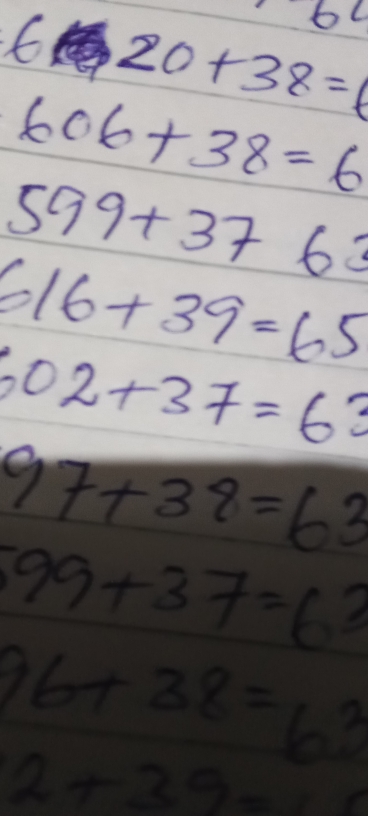 64
620+38=6
606+38=6
599+37 63
616+39=65
602+37=63
97+38=63
599+37=63
96+38=63
2+39=